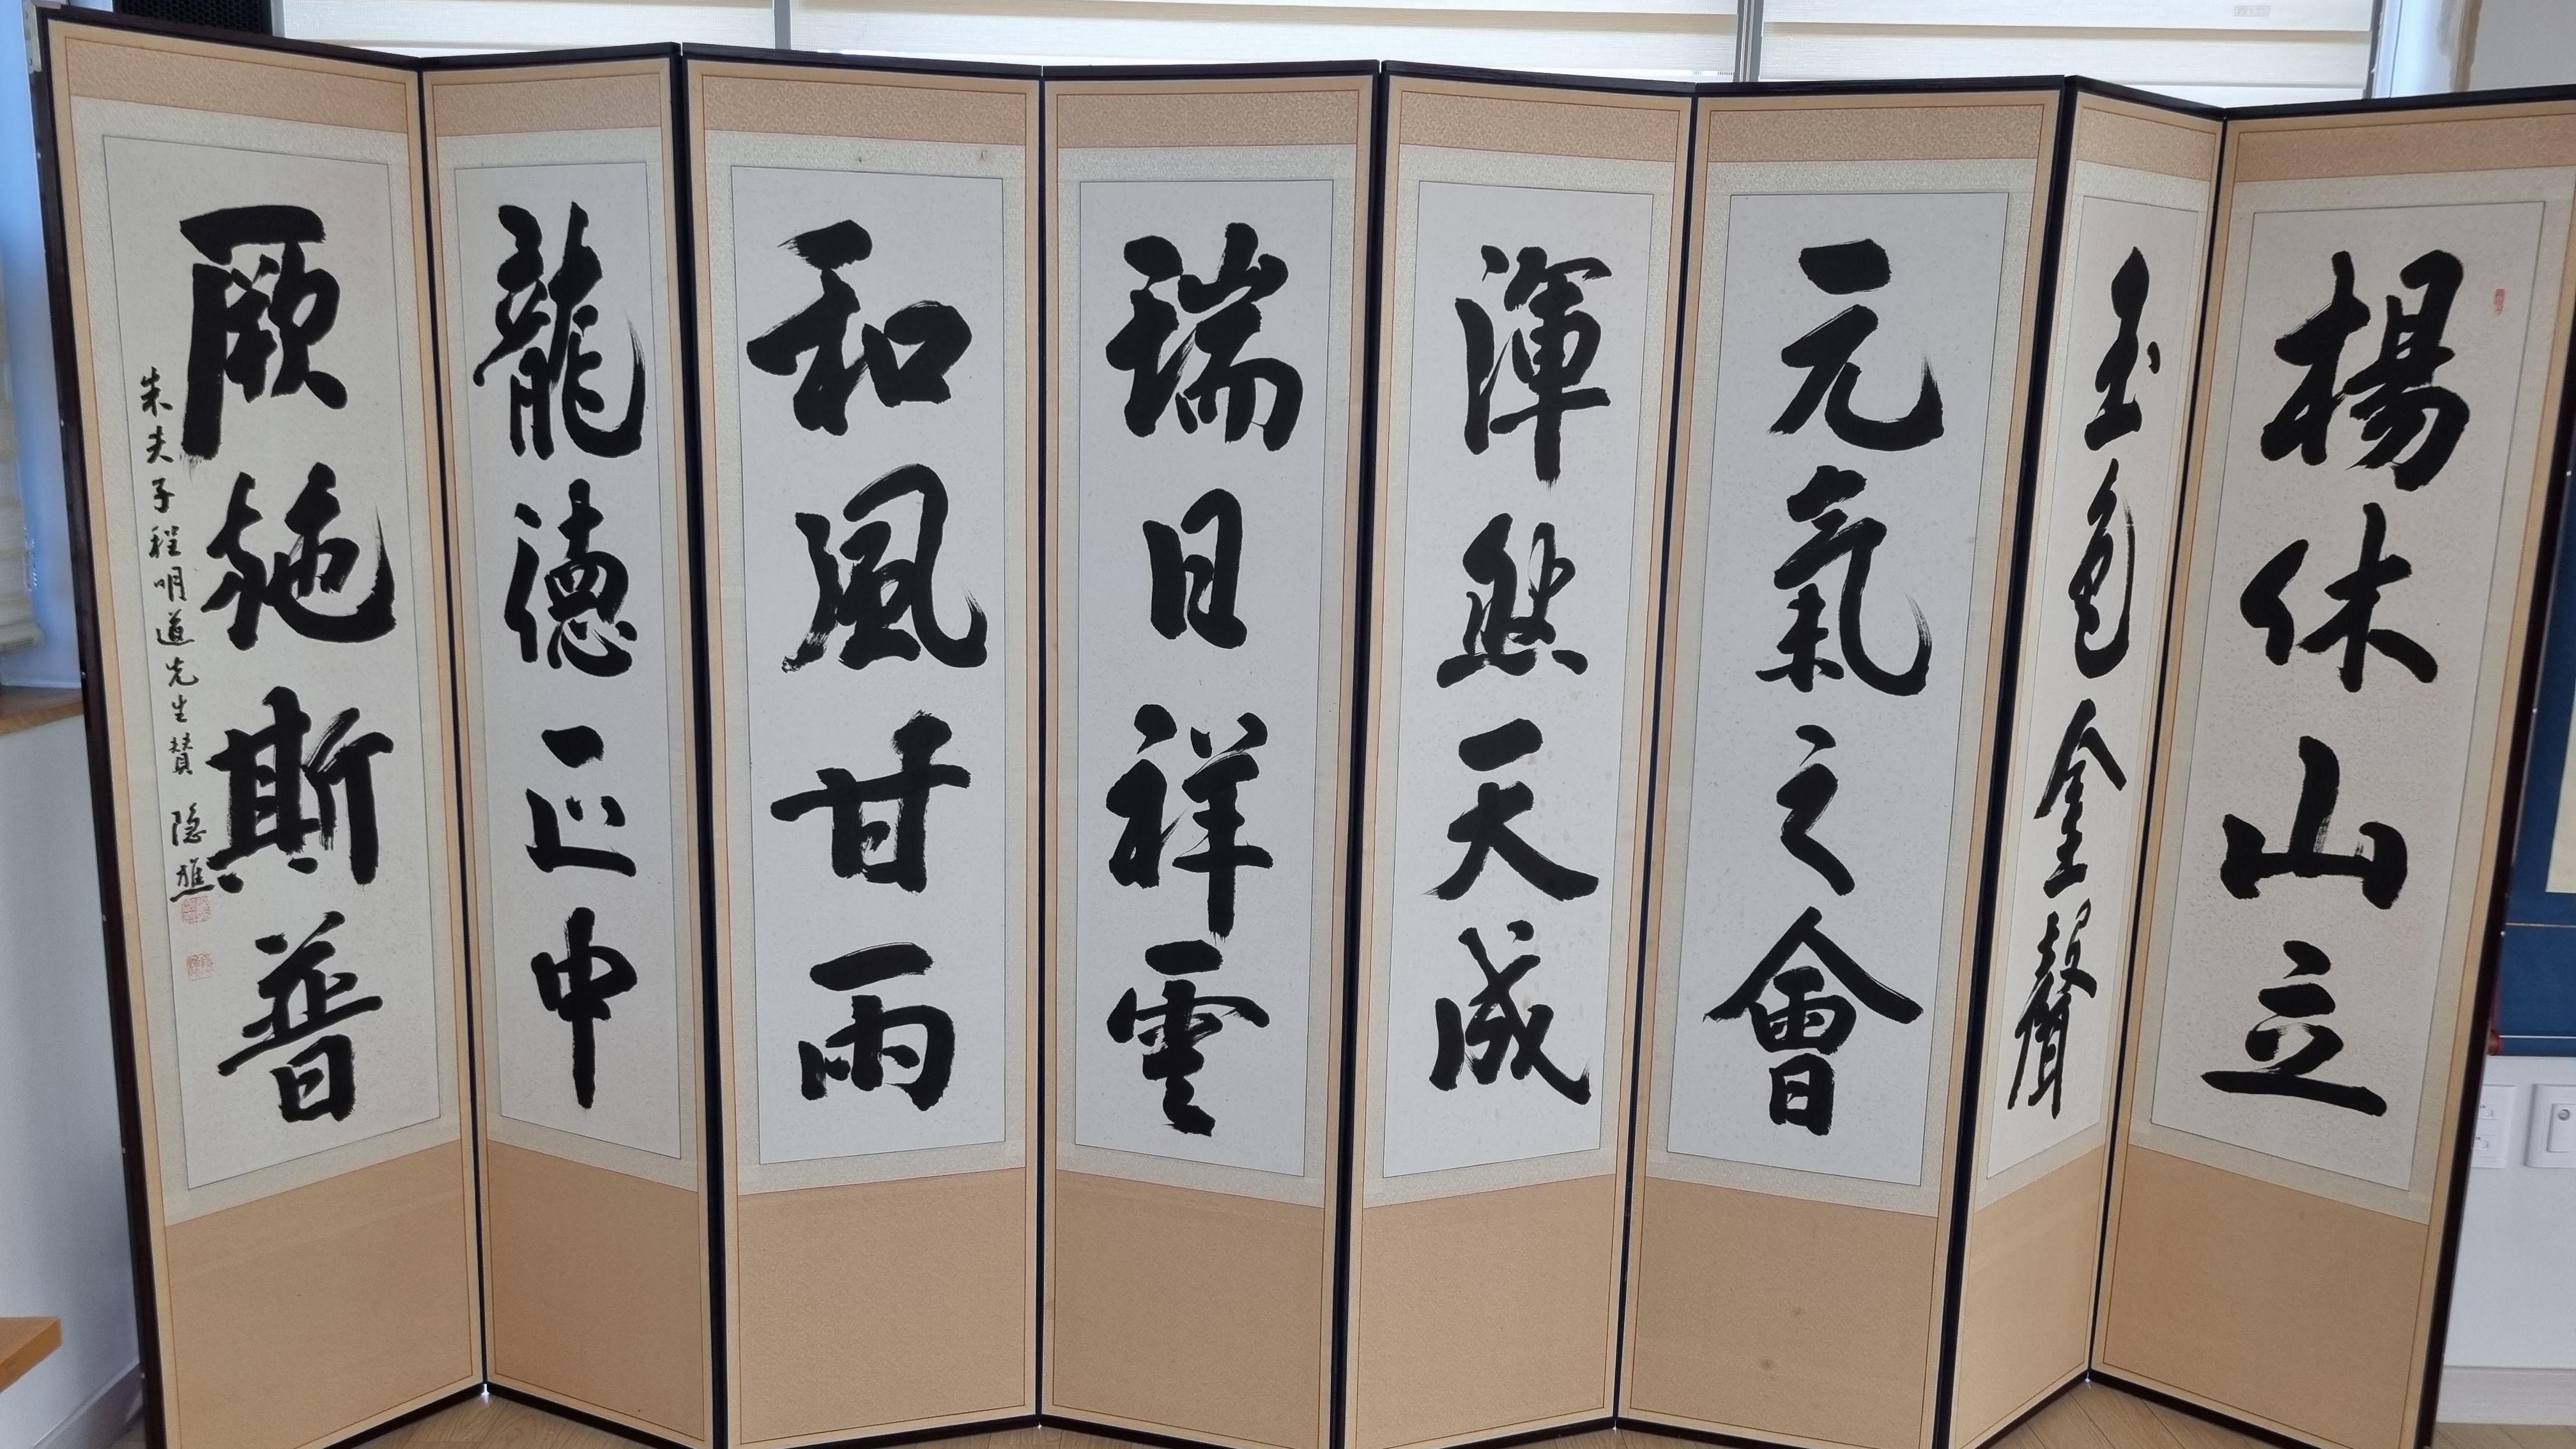 楊休山立
玉色金聲
元氣之會
渾然天成
瑞日祥雲
和風甘雨
龍德正中
厥施斯普
朱夫子程明道先生贊 隱樵